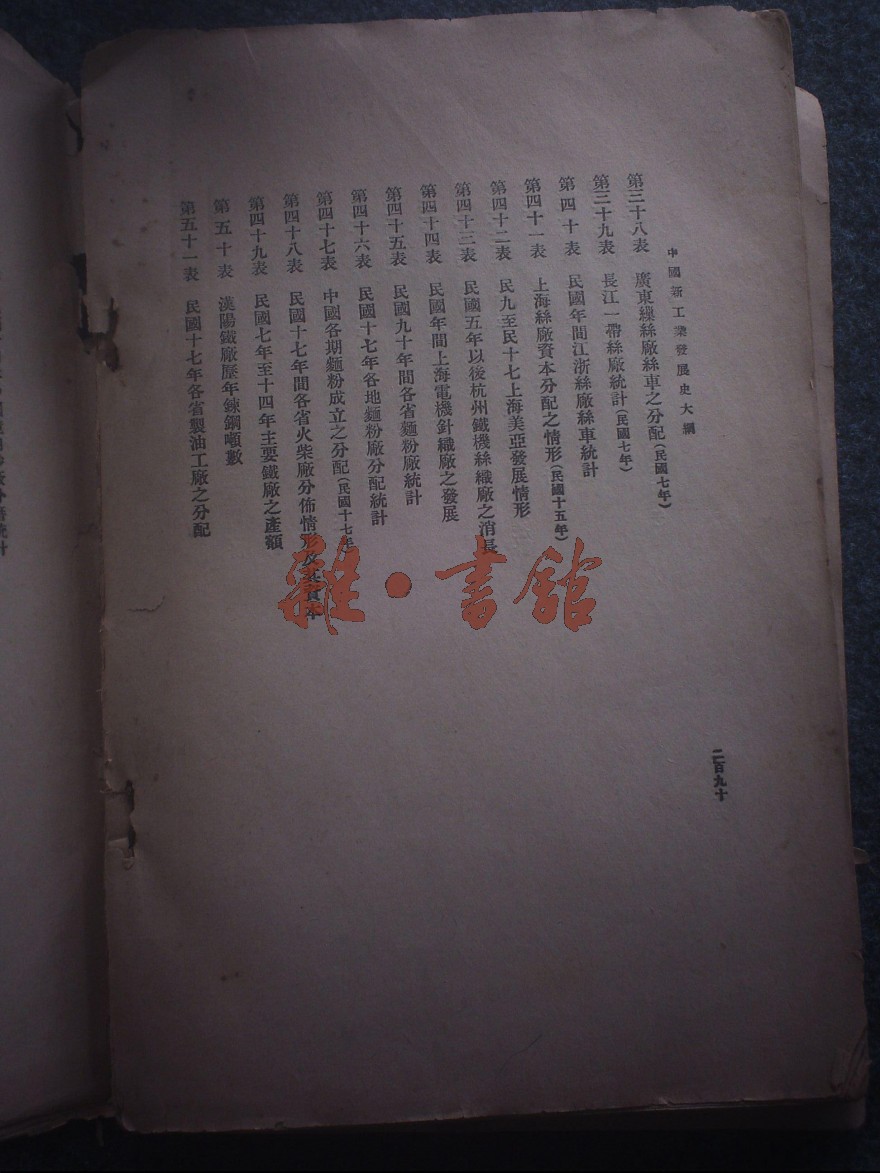 中國新工業發展史大綱
第三十八表 廣東繅絲廠絲車之分配(民國七年)
第三十九表 長江一帶絲廠統計(民國七年)
第四十表 民國年間江浙絲廠絲車統計
第四十一表 上海絲廠資本分配之情形(民國十五年)
第四十二表 民九至民十七上海美亞發展情形
第四十三表 民國五年以後杭州鐵機絲織廠之消長
第四十四表 民國年間上海電機針織廠之發展
第四十五表 民國九十年間各省麵粉廠統計
第四十六表 民國十七年各地麵粉廠分配統計
第四十七表 中國各期麵粉成立之分配(民國十七年
第四十八表 民國十七年間各省火柴廠分佈情形及其資本
第四十九表 民國七年至十四年主要鐵廠之產額
第五十表 漢陽鐵廠歷年鍊鋼噸數
第五十一表 民國十七年各省製油工廠之分配
二百九十
雜·書館
統計